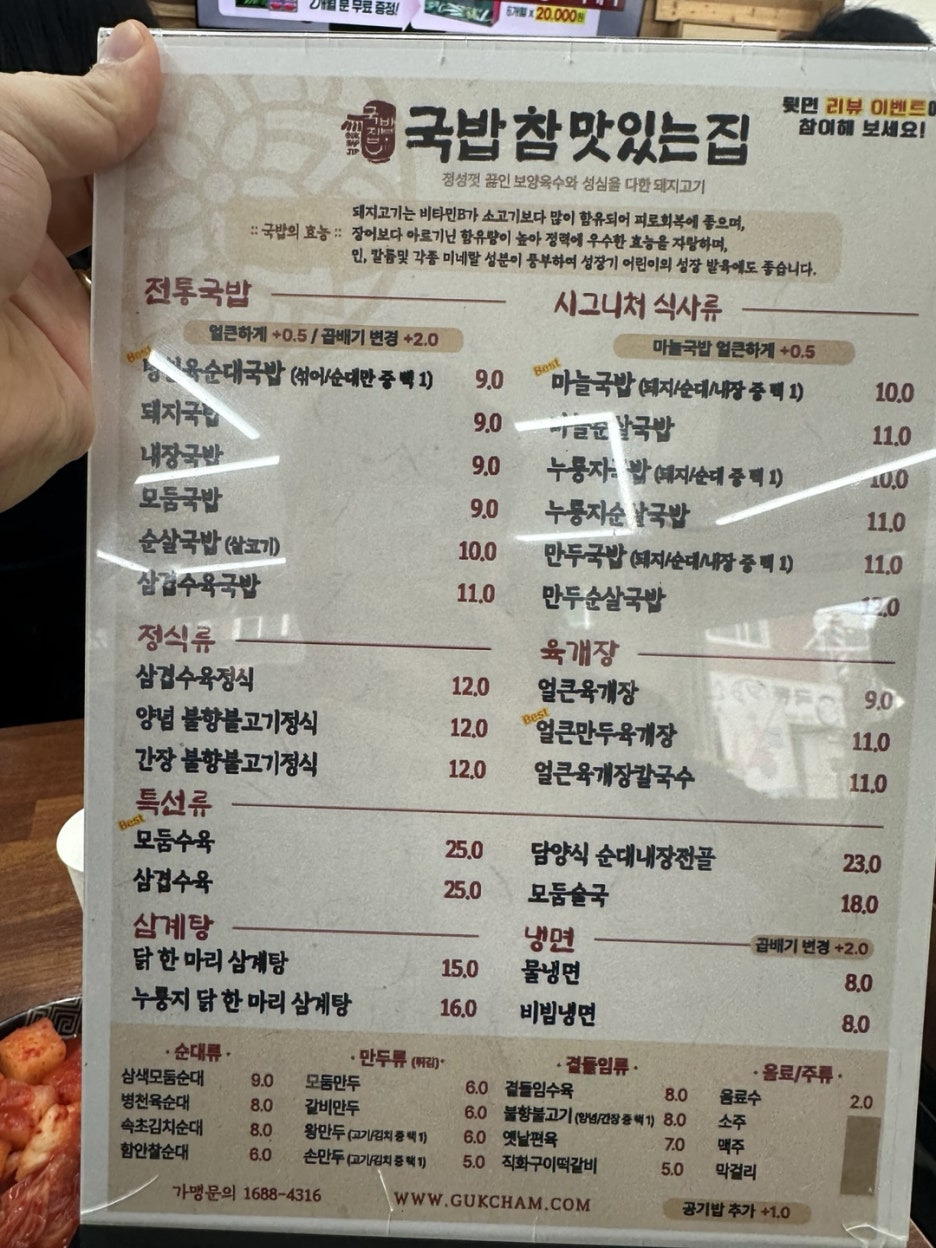 2개월 분 무료 증정!
6개월 x 20.000원
뒷면 리뷰 이벤트에
참여해 보세요!
국밥집
국밥 참 맛있는 집
정성껏 끓인 보양육수와 성심을 다한 돼지고기
:: 국밥의 효능 ::
돼지고기는 비타민B가 소고기보다 많이 함유되어 피로회복에 좋으며,
장어보다 아르기닌 함유량이 높아 정력에 우수한 효능을 자랑하며,
인, 칼륨및 각종 미네랄 성분이 풍부하여 성장기 어린이의 성장 발육에도 좋습니다.
전통국밥
얼큰하게 +0.5 / 곱배기 변경 +2.0
Best
병천육순대국밥 (섞어/순대만 중 택 1) 9.0
돼지국밥 9.0
내장국밥 9.0
모둠국밥 9.0
순살국밥 (살코기) 10.0
삼겹수육국밥 11.0
시그니처 식사류
마늘국밥 얼큰하게 +0.5
Best
마늘국밥 (돼지/순대/내장 중 택 1) 10.0
마늘순살국밥 11.0
누룽지국밥 (돼지/순대 중 택 1) 10.0
누룽지순살국밥 11.0
만두국밥 (돼지/순대/내장 중 택 1) 11.0
만두순살국밥 12.0
정식류
삼겹수육정식 12.0
양념 불향불고기정식 12.0
간장 불향불고기정식 12.0
육개장
얼큰육개장 9.0
Best
얼큰만두육개장 11.0
얼큰육개장칼국수 11.0
특선류
Best
모둠수육 25.0
삼겹수육 25.0
담양식 순대내장전골 23.0
모둠술국 18.0
삼계탕
닭 한 마리 삼계탕 15.0
누룽지 닭 한 마리 삼계탕 16.0
냉면
곱배기 변경 +2.0
물냉면 8.0
비빔냉면 8.0
· 순대류 ·
삼색모둠순대 9.0
병천육순대 8.0
속초김치순대 8.0
함안찰순대 6.0
· 만두류 (튀김) ·
모둠만두 6.0
갈비만두 6.0
왕만두 (고기/김치 중 택 1) 6.0
손만두 (고기/김치 중 택 1) 5.0
· 곁들임류 ·
곁들임수육 8.0
불향불고기 (양념/간장 중 택 1) 8.0
옛날편육 7.0
직화구이떡갈비 5.0
· 음료/주류 ·
음료수 2.0
소주
맥주
막걸리
가맹문의 1688-4316
WWW.GUKCHAM.COM
공기밥 추가 +1.0